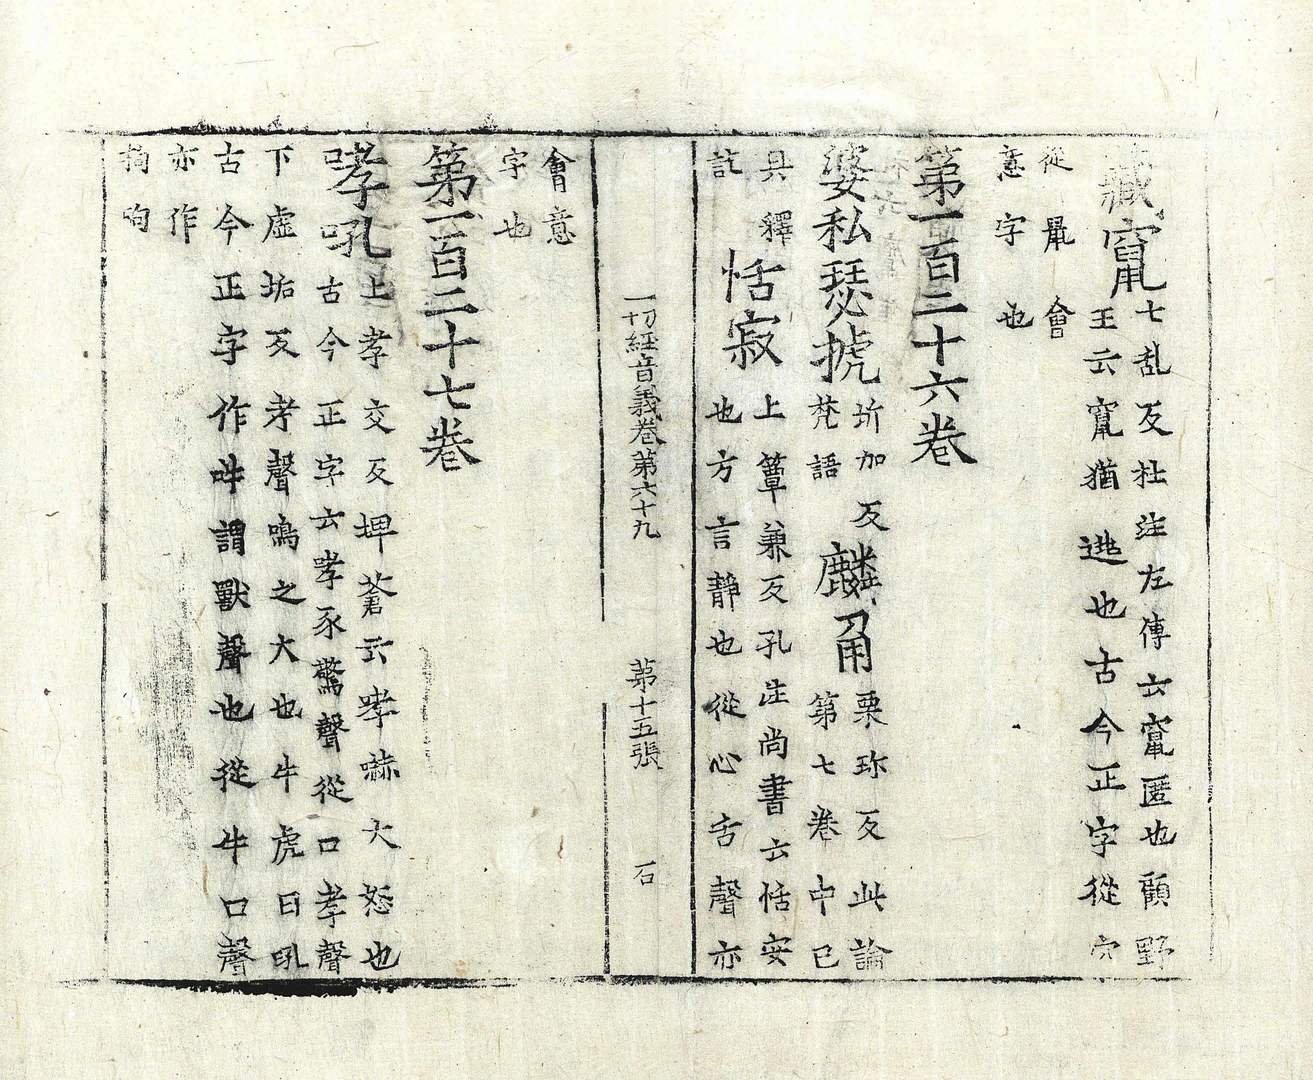 藏竄
七乱反杜注左傳云竄匿也顧野
王云竄猶逃也古今正字從穴
從鼠會
意字也
第一百二十六卷
婆私瑟搋
圻加反
梵語
麟角
栗珎反此論
第七卷中已
具釋
訖
恬寂
上簟兼反孔注尚書云恬安
也方言靜也從心舌聲亦
一切經音義卷第六十九 第十五張 石
會意
字也
第一百二十七卷
哮吼
上孝交反埤蒼云哮嚇大怒也
古今正字云哮豕驚聲從口孝聲
下虛垢反考聲鳴之大也牛虎曰吼
古今正字作吽謂獸聲也從牛口聲
亦作
拘呴